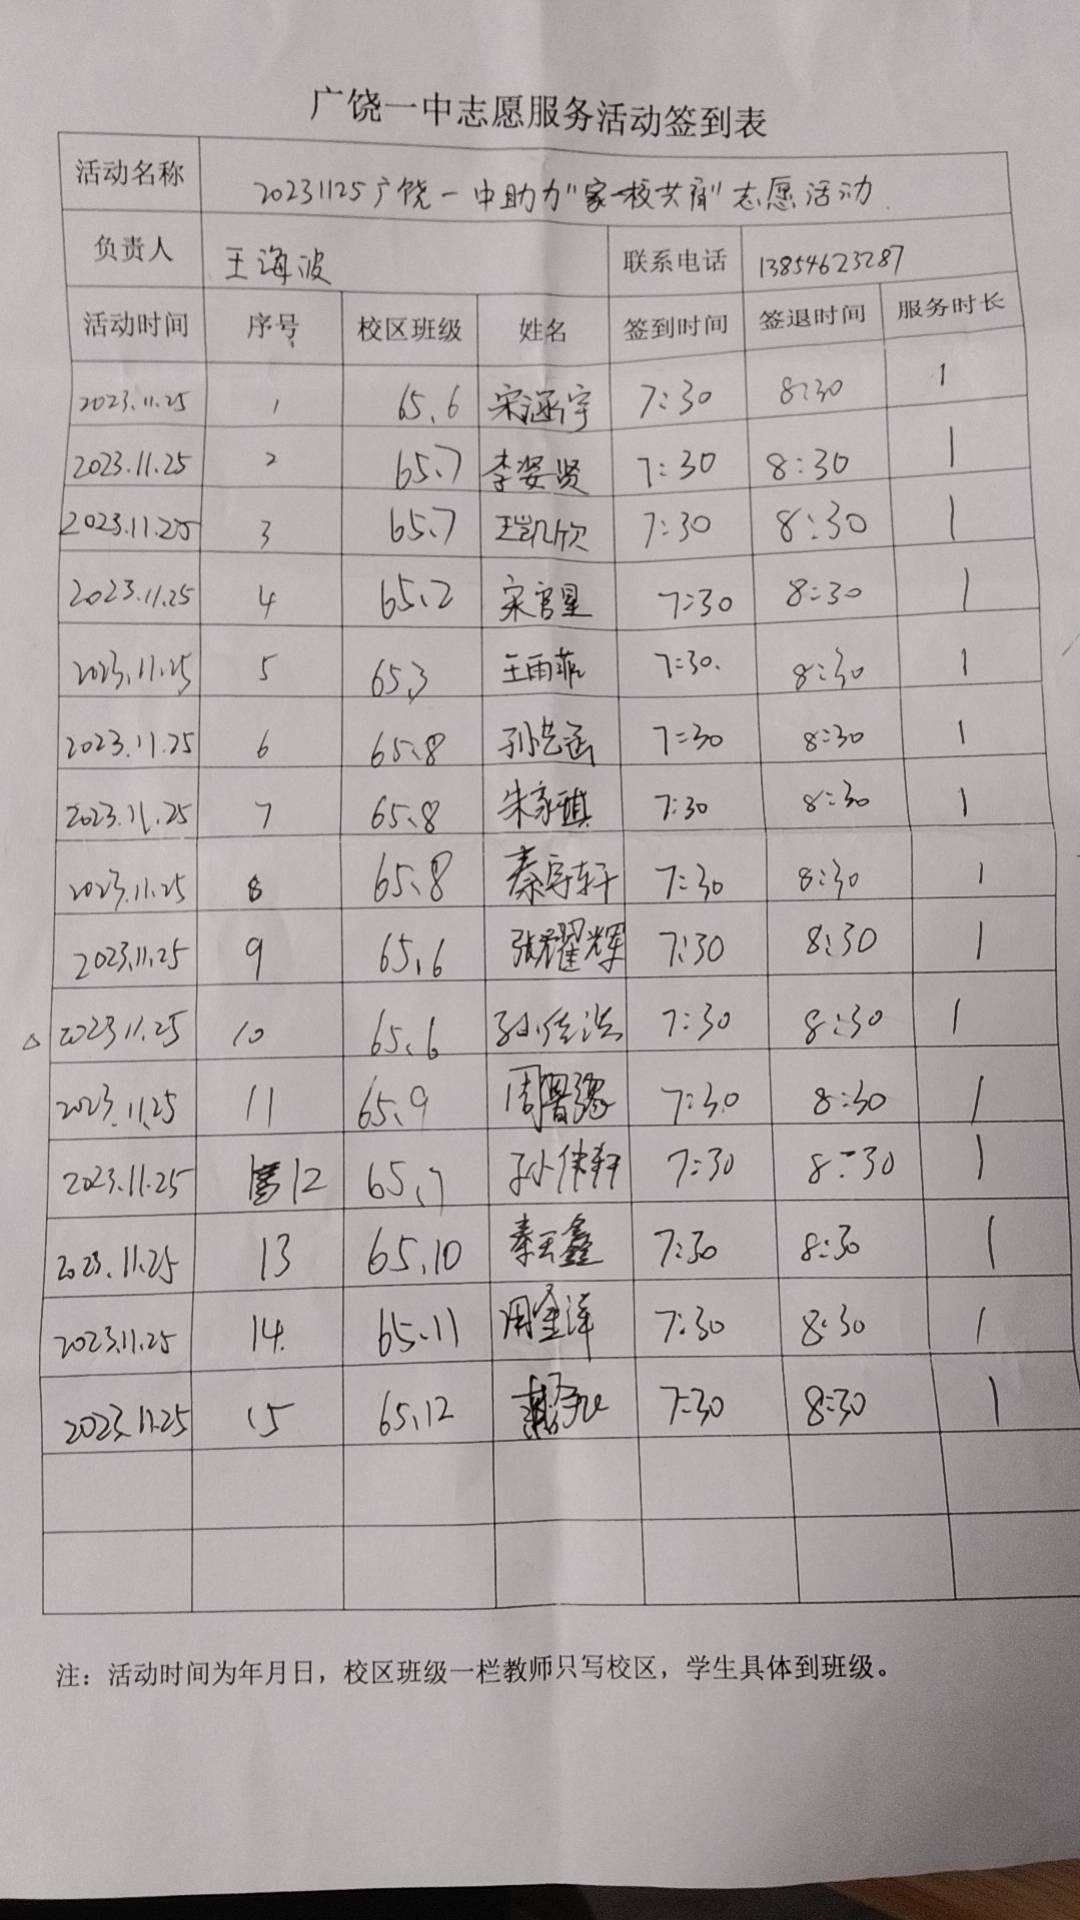 广饶一中志愿服务活动签到表
活动名称 20231125广饶一中助力“家校共育”志愿活动
负责人 王海波 联系电话 13854623287
活动时间 序号 校区班级 姓名 签到时间 签退时间 服务时长
2023.11.25 1 65.6 宋涵宇 7:30 8:30 1
2023.11.25 2 65.7 李姿贤 7:30 8:30 1
2023.11.25 3 65.7 王凯欣 7:30 8:30 1
2023.11.25 4 65.2 宋官星 7:30 8:30 1
2023.11.25 5 65.3 王雨菲 7:30. 8:30 1
2023.11.25 6 65.8 孙艺函 7:30 8:30 1
2023.11.25 7 65.8 朱家琪 7:30 8:30 1
2023.11.25 8 65.8 秦宇轩 7:30 8:30 1
2023.11.25 9 65.6 张耀辉 7:30 8:30 1
2023.11.25 10 65.6 7:30 8:30 1
2023.11.25 11 65.9 7:30 8:30 1
2023.11.25 12 65.7 孙伟轩 7:30 8:30 1
2023.11.25 13 65.10 秦云鑫 7:30 8:30 1
2023.11.25 14. 65.11 周金泽 7:30 8:30 1
2023.11.25 15 65.12 7:30 8:30 1
注：活动时间为年月日，校区班级一栏教师只写校区，学生具体到班级。